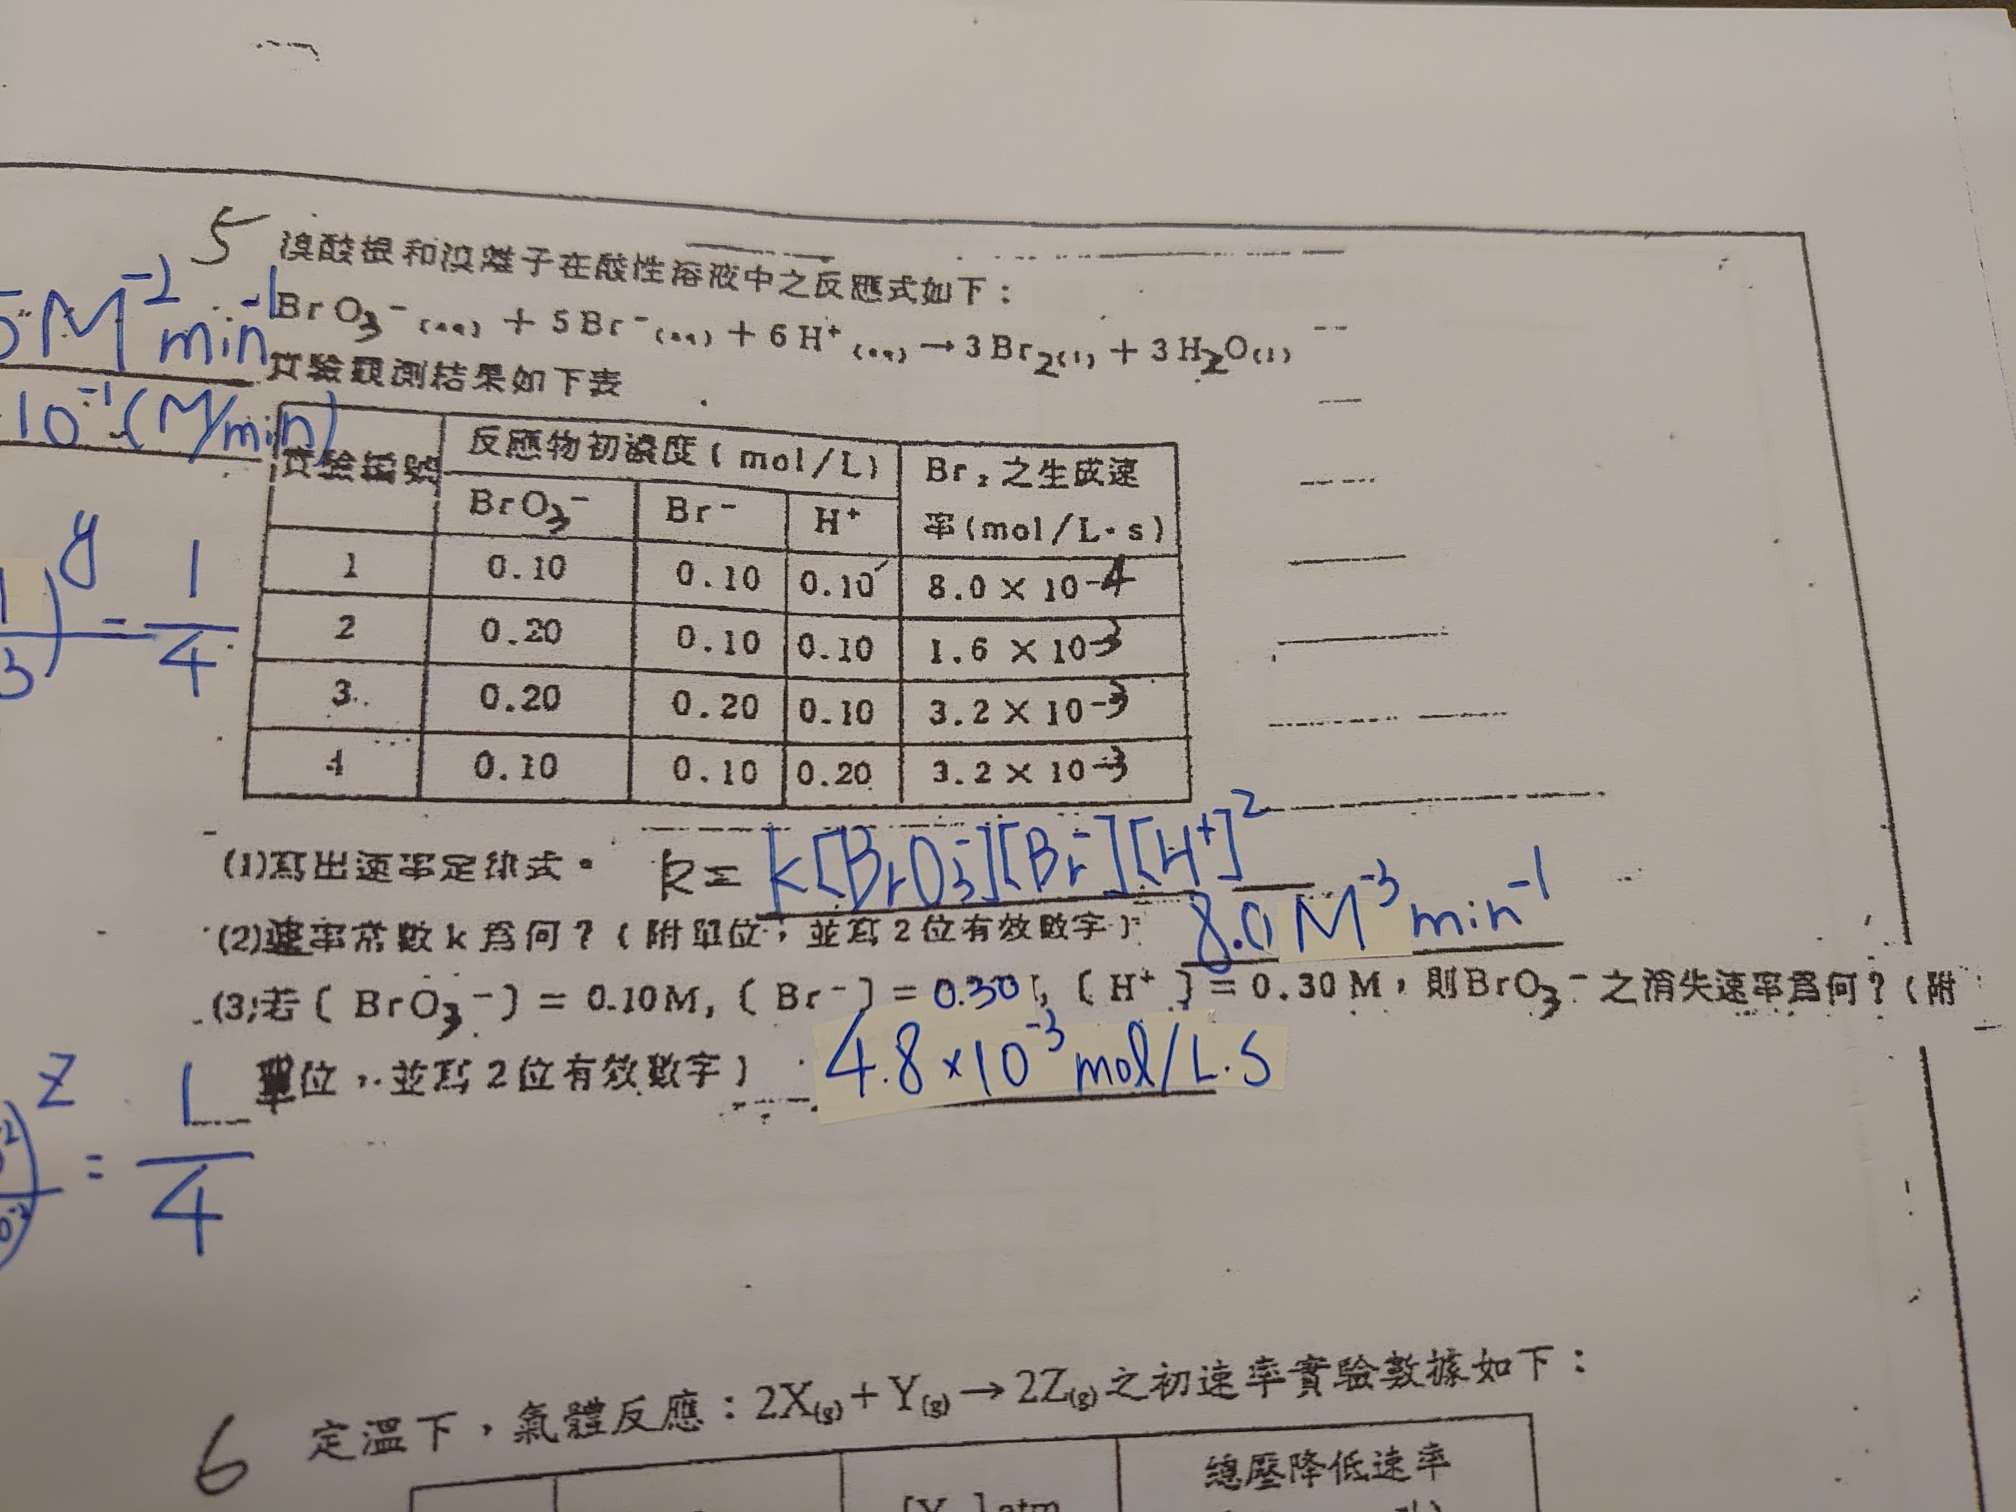 5 溴酸根和溴離子在酸性溶液中之反應式如下：
BrO3⁻(aq) + 5Br⁻(aq) + 6H⁺(aq) → 3Br2(l) + 3H2O(l)
實驗觀測結果如下表
實驗編號 反應物初濃度(mol/L) Br2之生成速率(mol/L·s)
BrO3⁻ Br⁻ H⁺
1 0.10 0.10 0.10 8.0×10⁻⁴
2 0.20 0.10 0.10 1.6×10⁻³
3 0.20 0.20 0.10 3.2×10⁻³
4 0.10 0.10 0.20 3.2×10⁻³
(1)寫出速率定律式。 R= k[BrO3⁻][Br⁻][H⁺]²
(2)速率常數k為何？(附單位，並寫2位有效數字) 8.0 M⁻³ min⁻¹
(3)若〔BrO3⁻〕=0.10M,〔Br⁻〕=0.30,〔H⁺〕=0.30M，則BrO3⁻之消失速率為何？(附
單位，並寫2位有效數字) 4.8×10⁻³ mol/L.S
M⁻² min⁻¹
10⁻¹ (M/min)
y = 1/4
z = 1/4
6 定溫下，氣體反應：2X(g)+Y(g)→2Z(g)之初速率實驗數據如下：
總壓降低速率